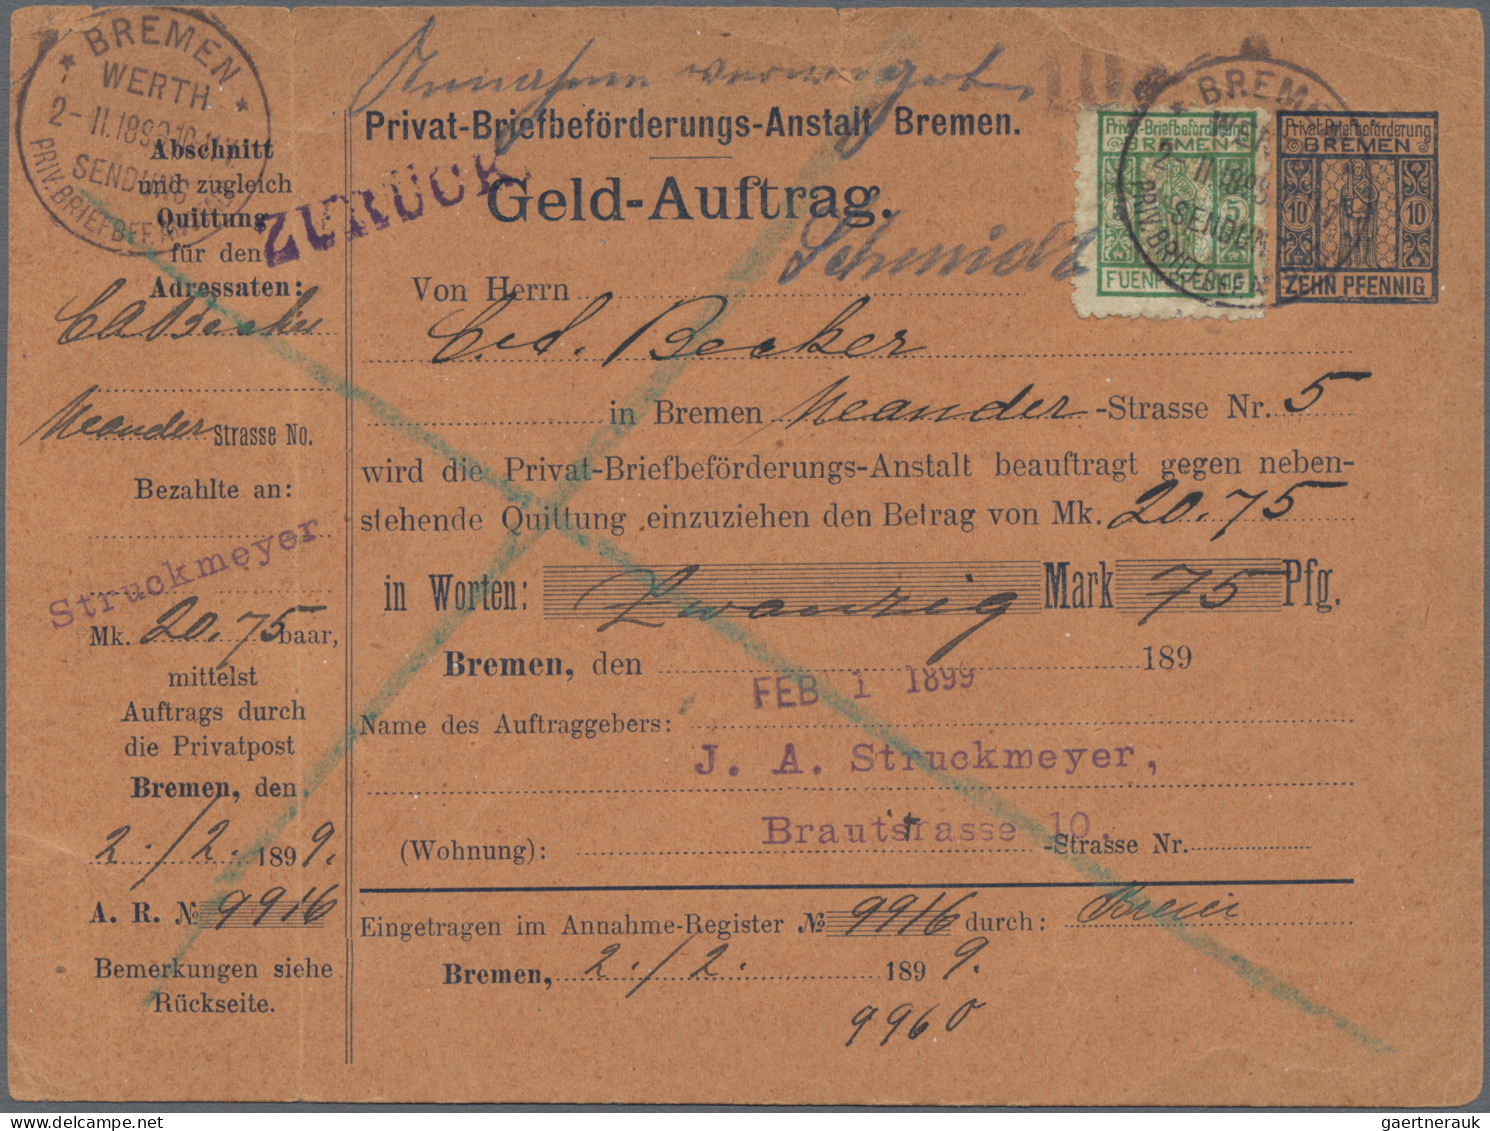 BREMEN
WERTH
2-II.1899.10-11V.
SENDUNG
PRIV.BRIEFBEF.ANSTALT
Annahme verweigert.
Schmidt
ZURÜCK
Privat-Briefbeförderungs-Anstalt Bremen.
Geld-Auftrag.
Privat-Briefbeförderung
BREMEN
5
FUENF PFENNIG
BREMEN
2-II.1899
SENDUNG
Privat-Briefbeförderung
BREMEN
10 10
ZEHN PFENNIG
Abschnitt
und zugleich
Quittung
für den
Adressaten:
Becker
Neander Strasse No.
Bezahlte an:
Struckmeyer
Mk. 20.75 baar,
mittelst
Auftrags durch
die Privatpost
Bremen, den
2./2. 1899.
A. R. № 9916
Bemerkungen siehe
Rückseite.
Von Herrn
Becker
in Bremen Neander-Strasse Nr. 5
wird die Privat-Briefbeförderungs-Anstalt beauftragt gegen neben-
stehende Quittung einzuziehen den Betrag von Mk. 20.75
in Worten: Zwanzig Mark 75 Pfg.
Bremen, den 189
FEB 1 1899
Name des Auftraggebers:
J. A. Struckmeyer,
Brautstrasse 10.
(Wohnung): -Strasse Nr.
Eingetragen im Annahme-Register № 9916 durch:
Bremen, 2./2. 1899.
9960
gaertnerauk